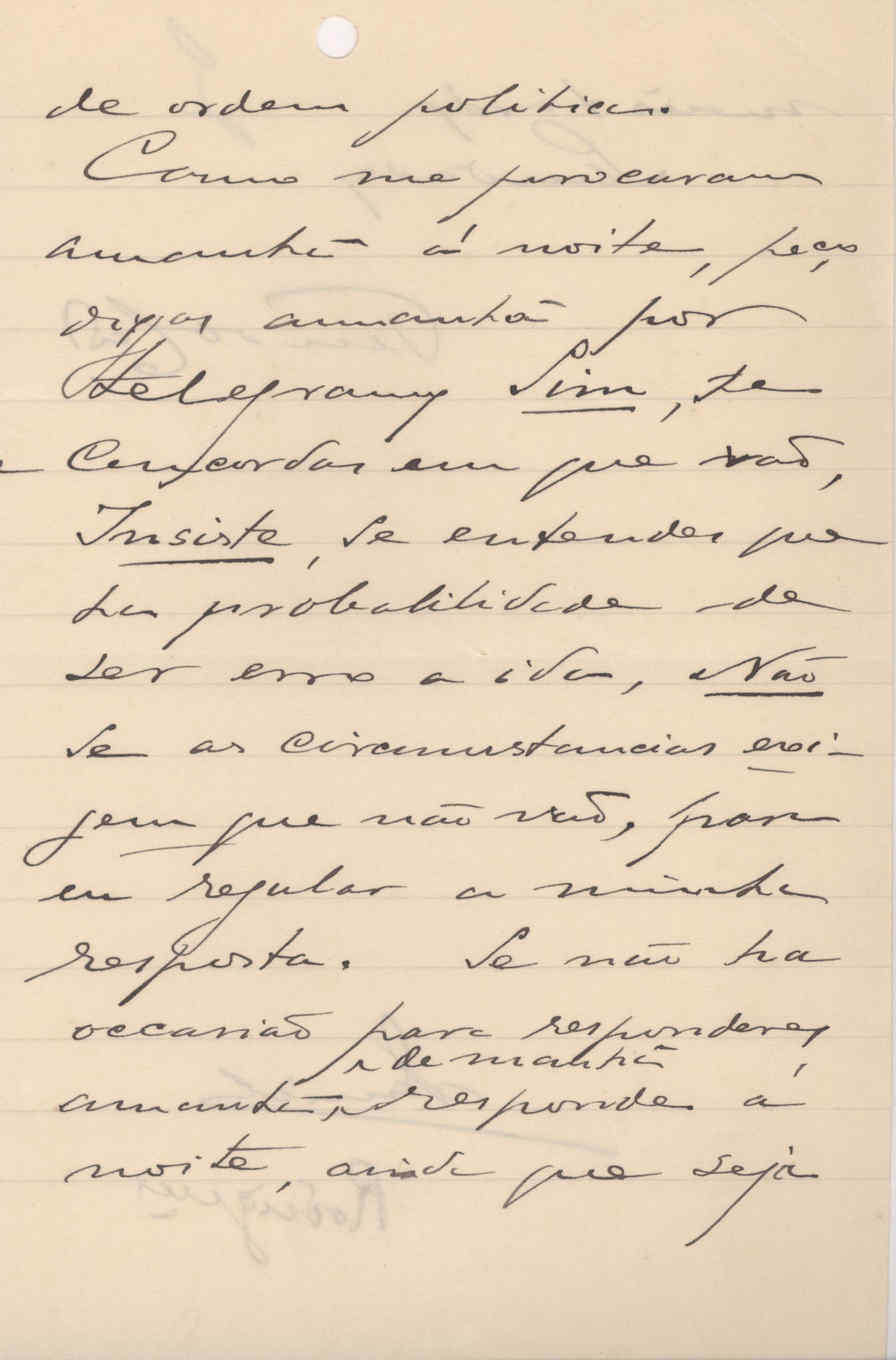 de ordem politica.
Como me procuram
amanhã á noite, peço
digas amanhã por
telegramma Sim, se
Concordas em que vaõ,
Insiste, se entendes que
ha probabilidade de
ser erro a ida, Não
se as circumstancias exi-
gem que não vaõ, para
eu regular a minha
resposta. Se não ha
occasiaõ para responderes
de manhã
amanhã, responde á
noite, ainda que seja